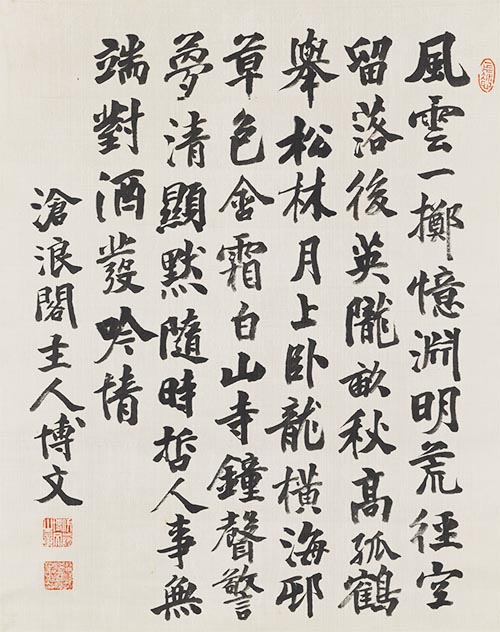 風雲一擲憶淵明荒徑空
留落後英隴畝秋高孤鶴
舉松林月上臥龍橫海邨
草色含霜白山寺鐘聲警
夢清顯默隨時哲人事無
端對酒發吟情
滄浪閣主人博文